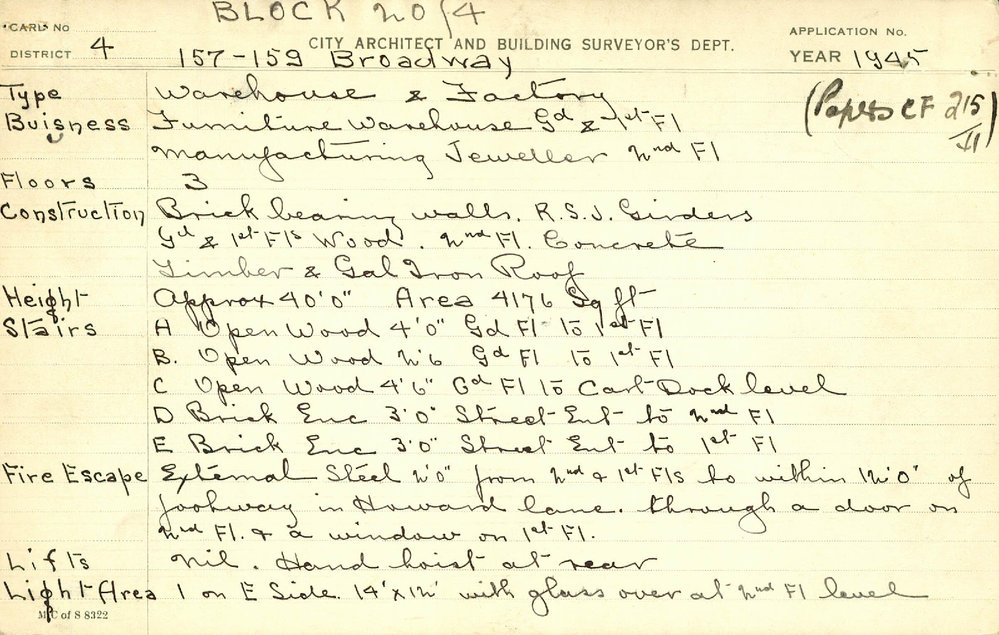 BLOCK 20/4
CARD No
DISTRICT 4
CITY ARCHITECT AND BUILDING SURVEYOR'S DEPT.
APPLICATION No.
YEAR 1945
157-159 Broadway
Type Warehouse & Factory
(Papers CF 215/II)
Buisness Furniture Warehouse Gd & 1st Fl
Manufacturing Jeweller 2nd Fl
Floors 3
Construction Brick bearing walls. R.S.J. Girders
Gd & 1st Fls Wood. 2nd Fl. Concrete
Timber & Gal Iron Roof
Height Approx 40'0" Area 4176 Sq ft
Stairs A Open Wood 4'0" Gd Fl to 1st Fl
B. Open Wood 2'6 Gd Fl to 1st Fl
C Open Wood 4'6" Gd Fl to Cart Dock level
D Brick Enc 3'0" Street Ent to 2nd Fl
E Brick Enc 3'0" Street Ent to 1st Fl
Fire Escape External Steel 2'0" from 2nd & 1st Fls to within 12'0" of
footway in Howard lane. through a door on
2nd Fl. & a window on 1st Fl.
Lifts Nil. Hand hoist at rear
Light Area 1 on E Side 14'x12' with glass over at 2nd Fl level
M.C of S 8322